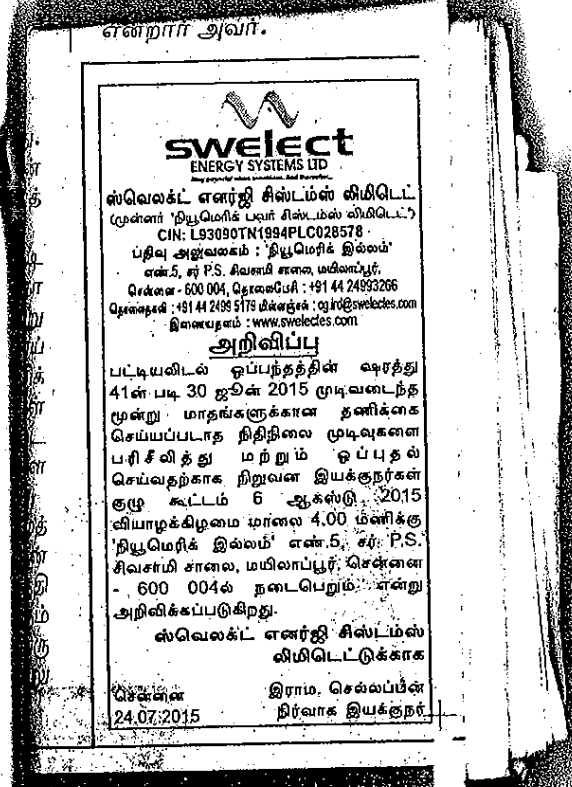 என்றார் அவர்.
swelect
ENERGY SYSTEMS LTD
ஸ்வெலக்ட் எனர்ஜி சிஸ்டம்ஸ் லிமிடெட்
(முன்னர் 'நியூமெரிக் பவர் சிஸ்டம்ஸ் லிமிடெட்')
CIN: L93090TN1994PLC028578
பதிவு அலுவலகம் : 'நியூமெரிக் இல்லம்'
எண்.5, சர் P.S. சிவசாமி சாலை, மயிலாப்பூர்,
சென்னை - 600 004, தொலைபேசி : +91 44 24993266
தொலைநகல் : +91 44 2499 5179 மின்னஞ்சல் : cg.ird@swelectes.com
இணையதளம் : www.swelectes.com
அறிவிப்பு
பட்டியலிடல் ஒப்பந்தத்தின் ஷரத்து
41ன் படி 30 ஜூன் 2015 முடிவடைந்த
மூன்று மாதங்களுக்கான தணிக்கை
செய்யப்படாத நிதிநிலை முடிவுகளை
பரிசீலித்து மற்றும் ஒப்புதல்
செய்வதற்காக நிறுவன இயக்குநர்கள்
குழு கூட்டம் 6 ஆகஸ்டு, 2015
வியாழக்கிழமை மாலை 4.00 மணிக்கு
'நியூமெரிக் இல்லம்' எண்.5, சர் P.S.
சிவசாமி சாலை, மயிலாப்பூர், சென்னை
- 600 004ல் நடைபெறும் என்று
அறிவிக்கப்படுகிறது.
ஸ்வெலக்ட் எனர்ஜி சிஸ்டம்ஸ்
லிமிடெட்டுக்காக
சென்னை இராம. செல்லப்பன்
24.07.2015 நிர்வாக இயக்குநர்